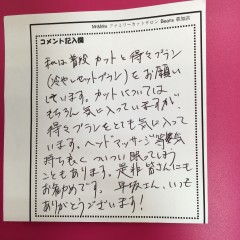 コメント記入欄
私は普段 カットと得々プラン
(冷やしセットプラン)をお願い
しています。カットについては
もちろん気に入っていますが
得々プランをとても気に入って
います。ヘッドマッサージ等気
持ち良く ついつい眠ってしまう
こともあります。是非皆さんにも
お勧めです。 いつも
ありがとうございます!